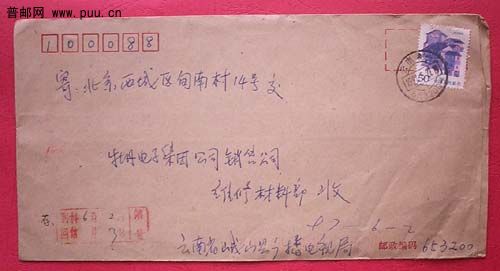 普邮网
www.puu.cn
100088
寄：北京西城区甸南村14号交
牡丹电子集团公司销售公司
维修材料部 收
存.
97-6-2
云南省峨山县广播电视局
邮政编码 653200
50